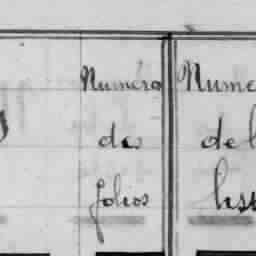 Numéro
des
folios
Numé
de l
liss